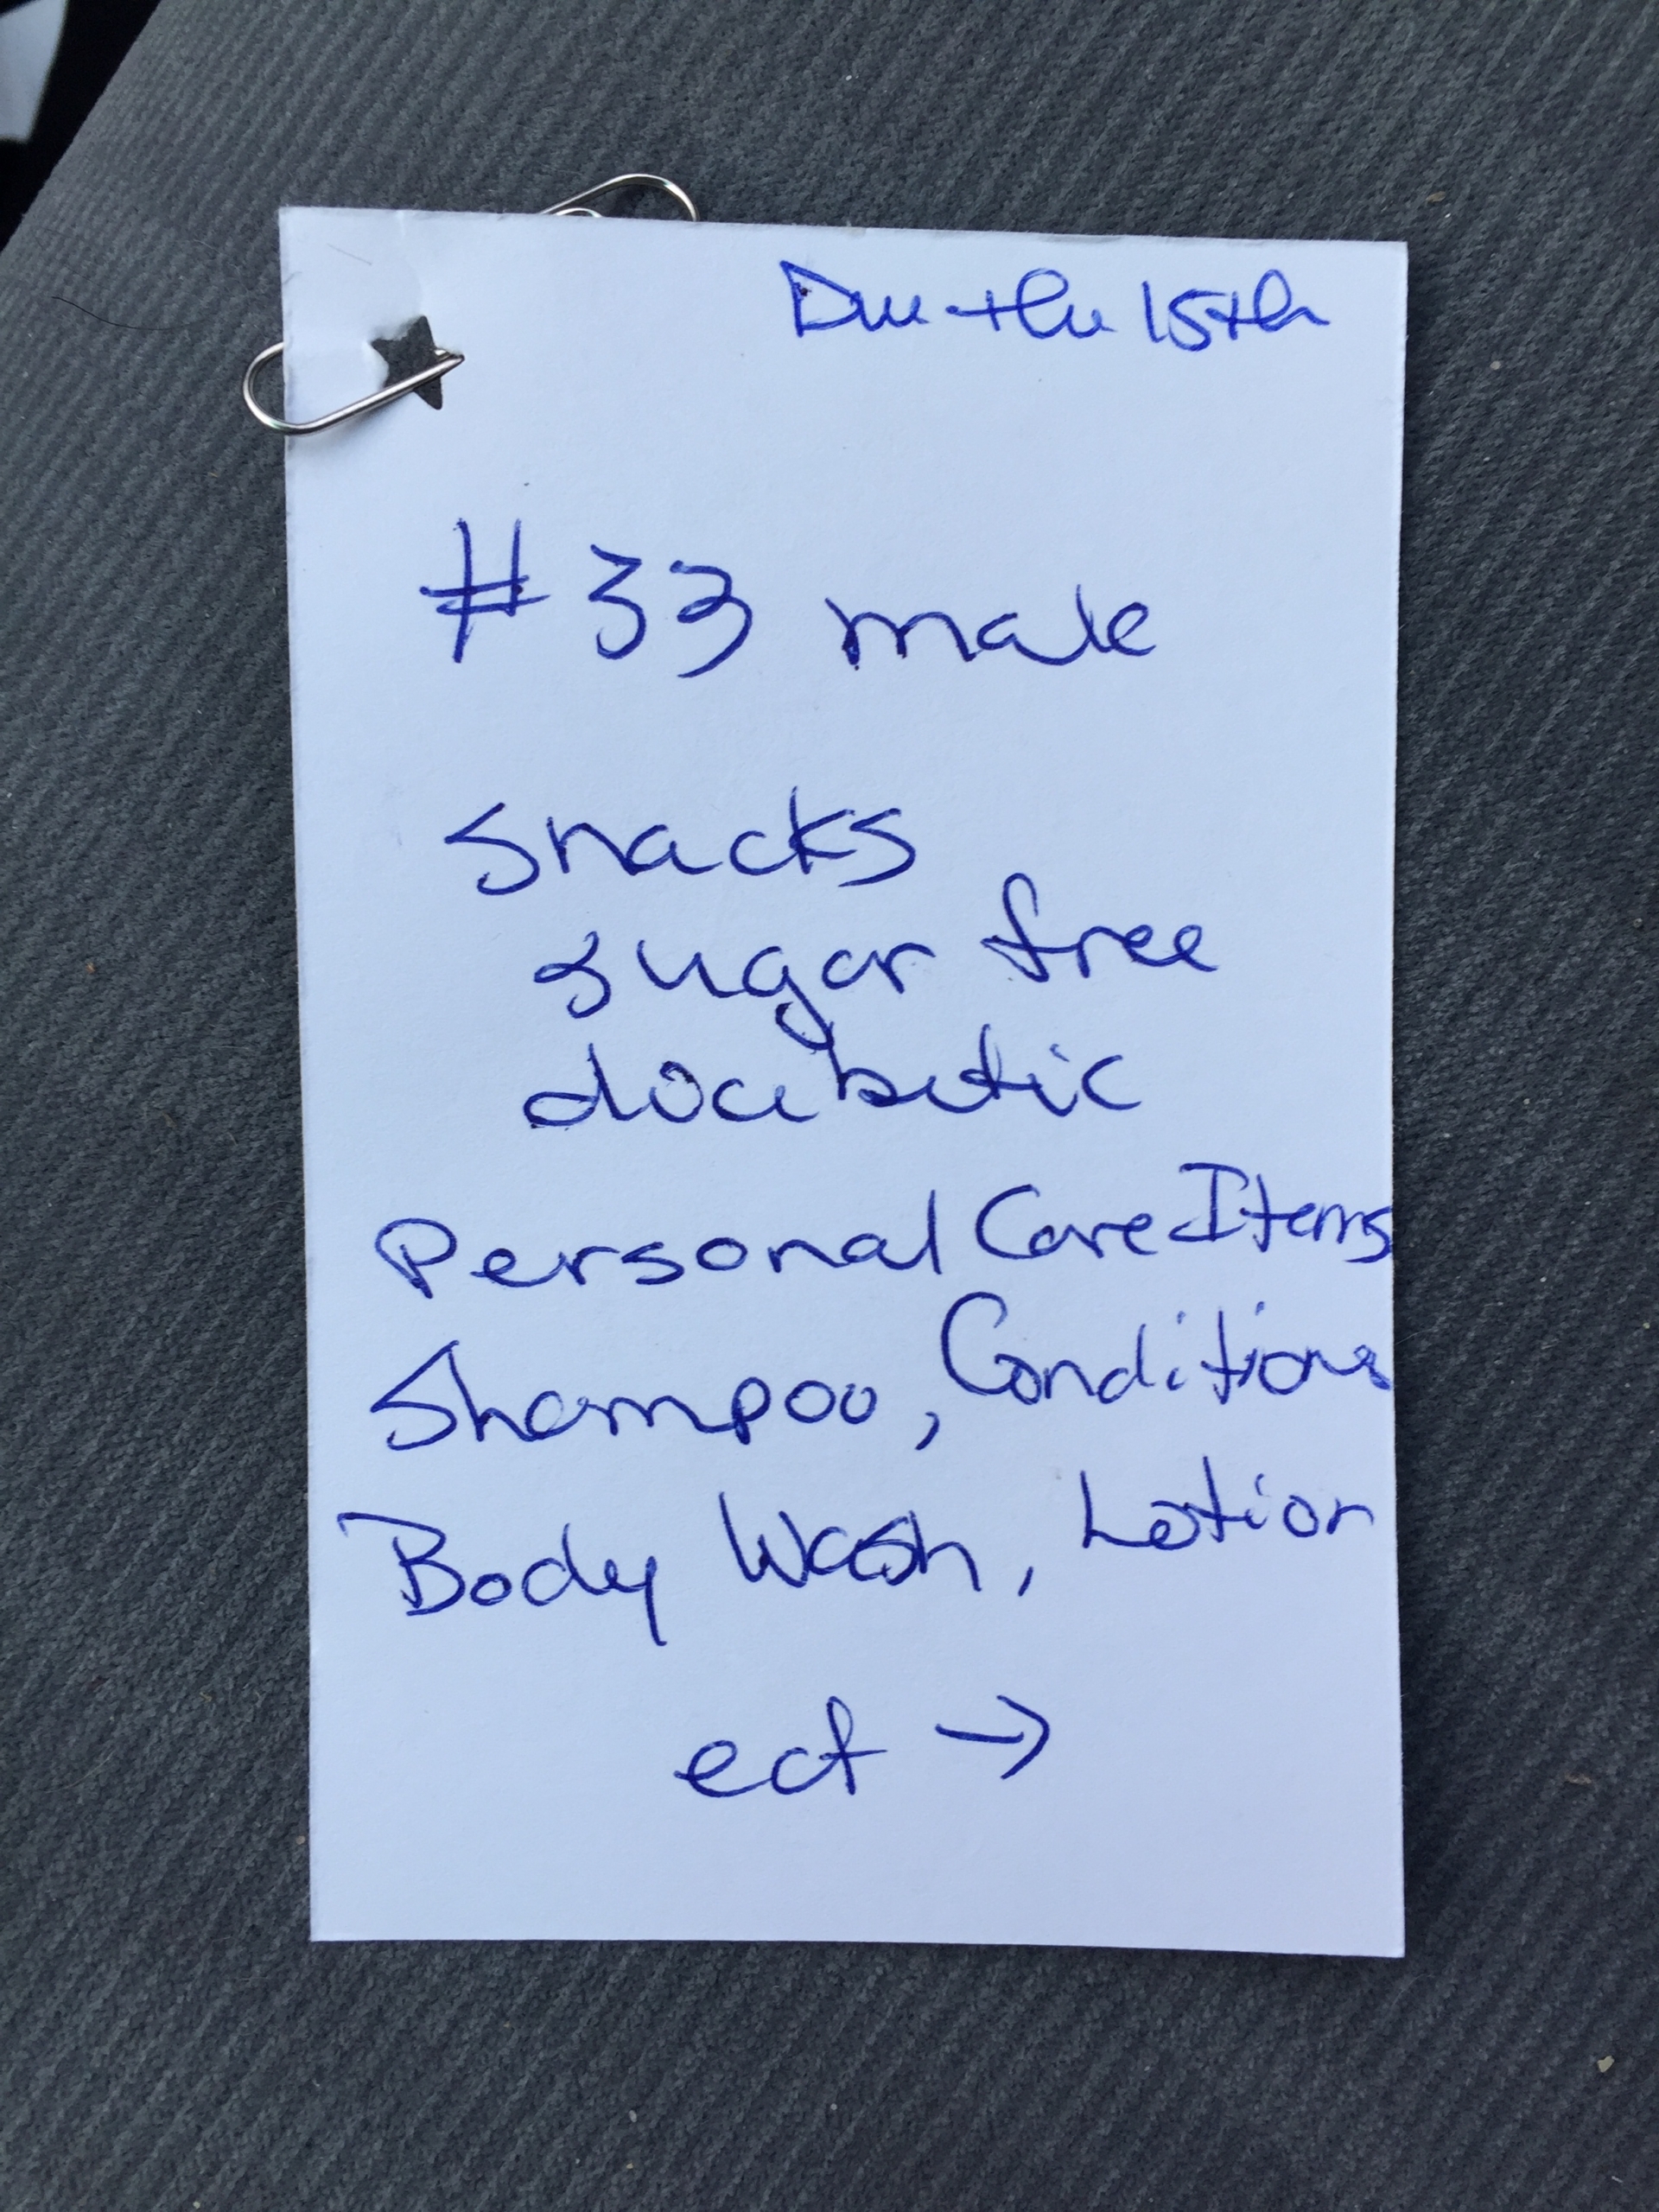 Due the 15th
#33 male
Snacks
sugar free
diabetic
Personal Care Items
Shampoo, Conditions
Body Wash, Lotion
ect →